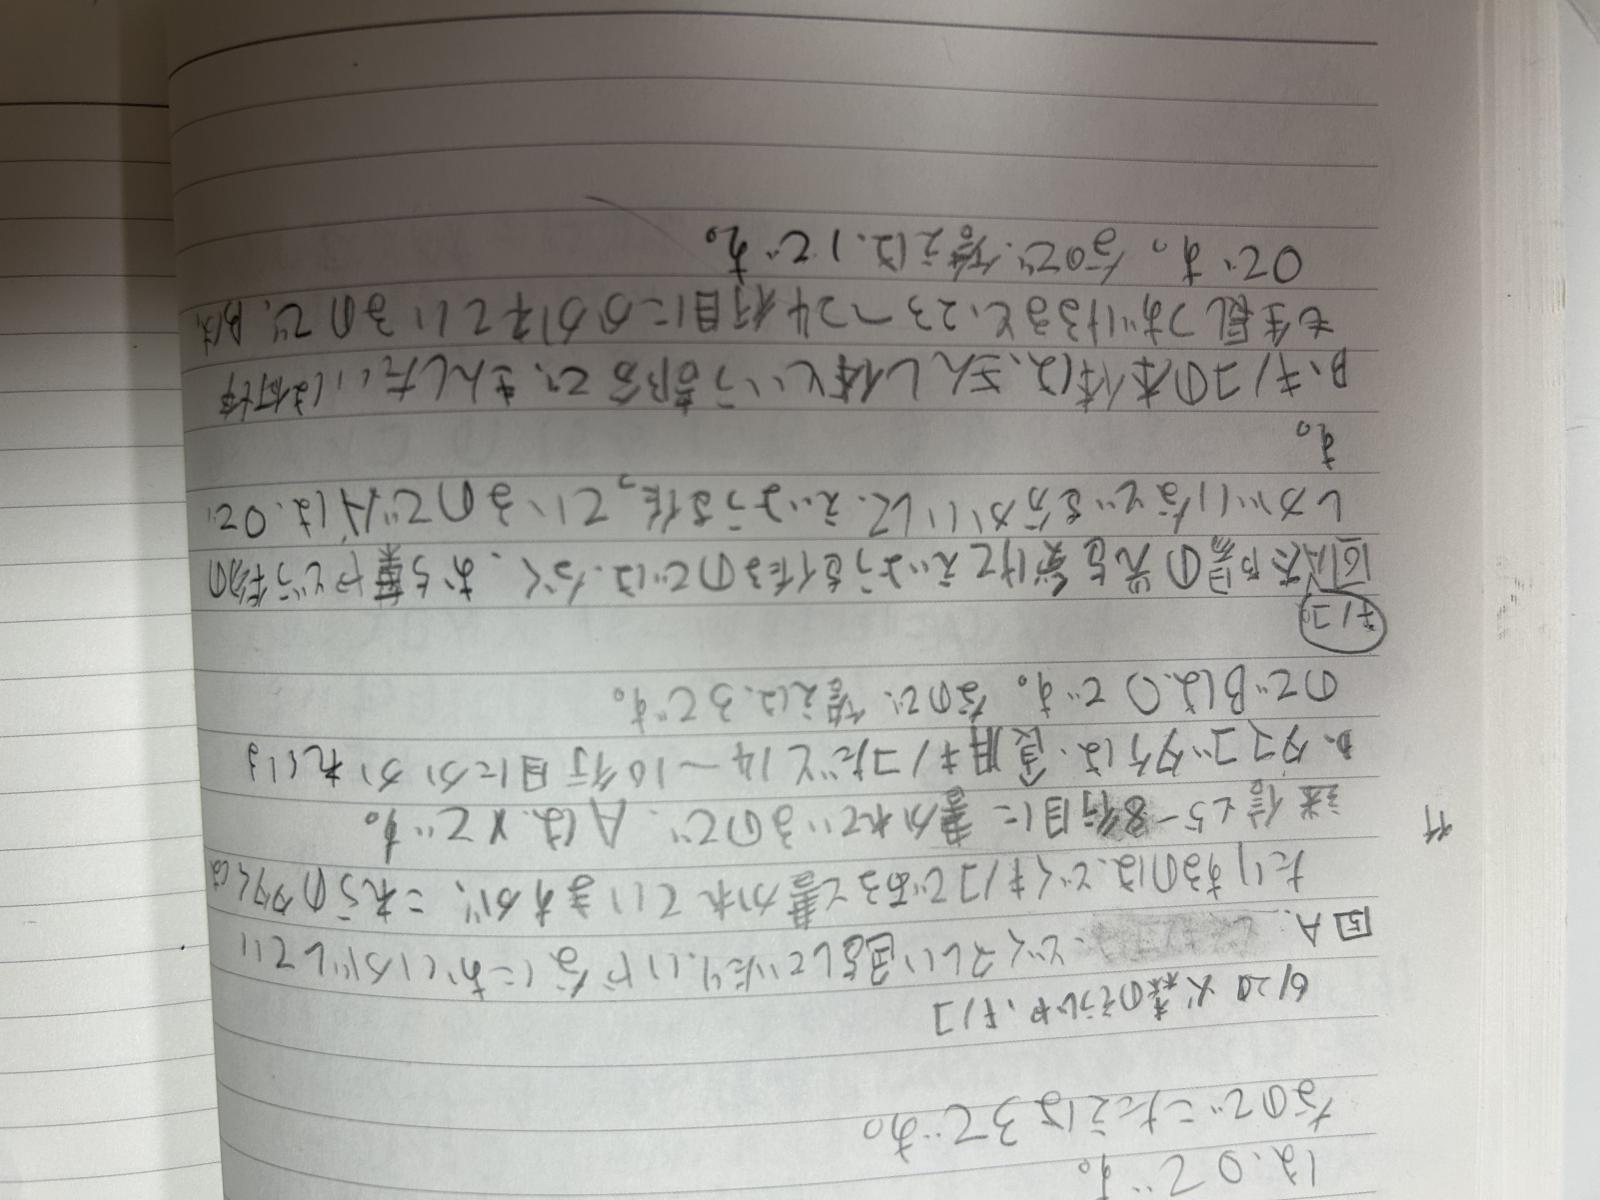 は、○です。
なのでこたえは3です。
6/20 火 森のそうじや、キノコ
国 A. どくどくしい色をしていたり、いやなにおいがしてい
たりするのは、どくキノコであると書かれていますが、これらの多くは
迷信と5〜8行目に書かれているので、Aは、×です。
B、タマゴタケは、食用キノコだと14〜16行目にかかれている
のでBは、○です。なので、答えは、3です。
キノコ
国A太陽の光を受けてえいようを作るのでは、なく、おち葉やどう物の
しがいなどを分かいして、えいようを作っているのでAは、○で
す。
B、キノコの本体は、きんし体という部分で、きんしたいは何年
も生長しつづけると、23〜24行目にかかれているので、Bは、
○です。なので、答えは、1です。